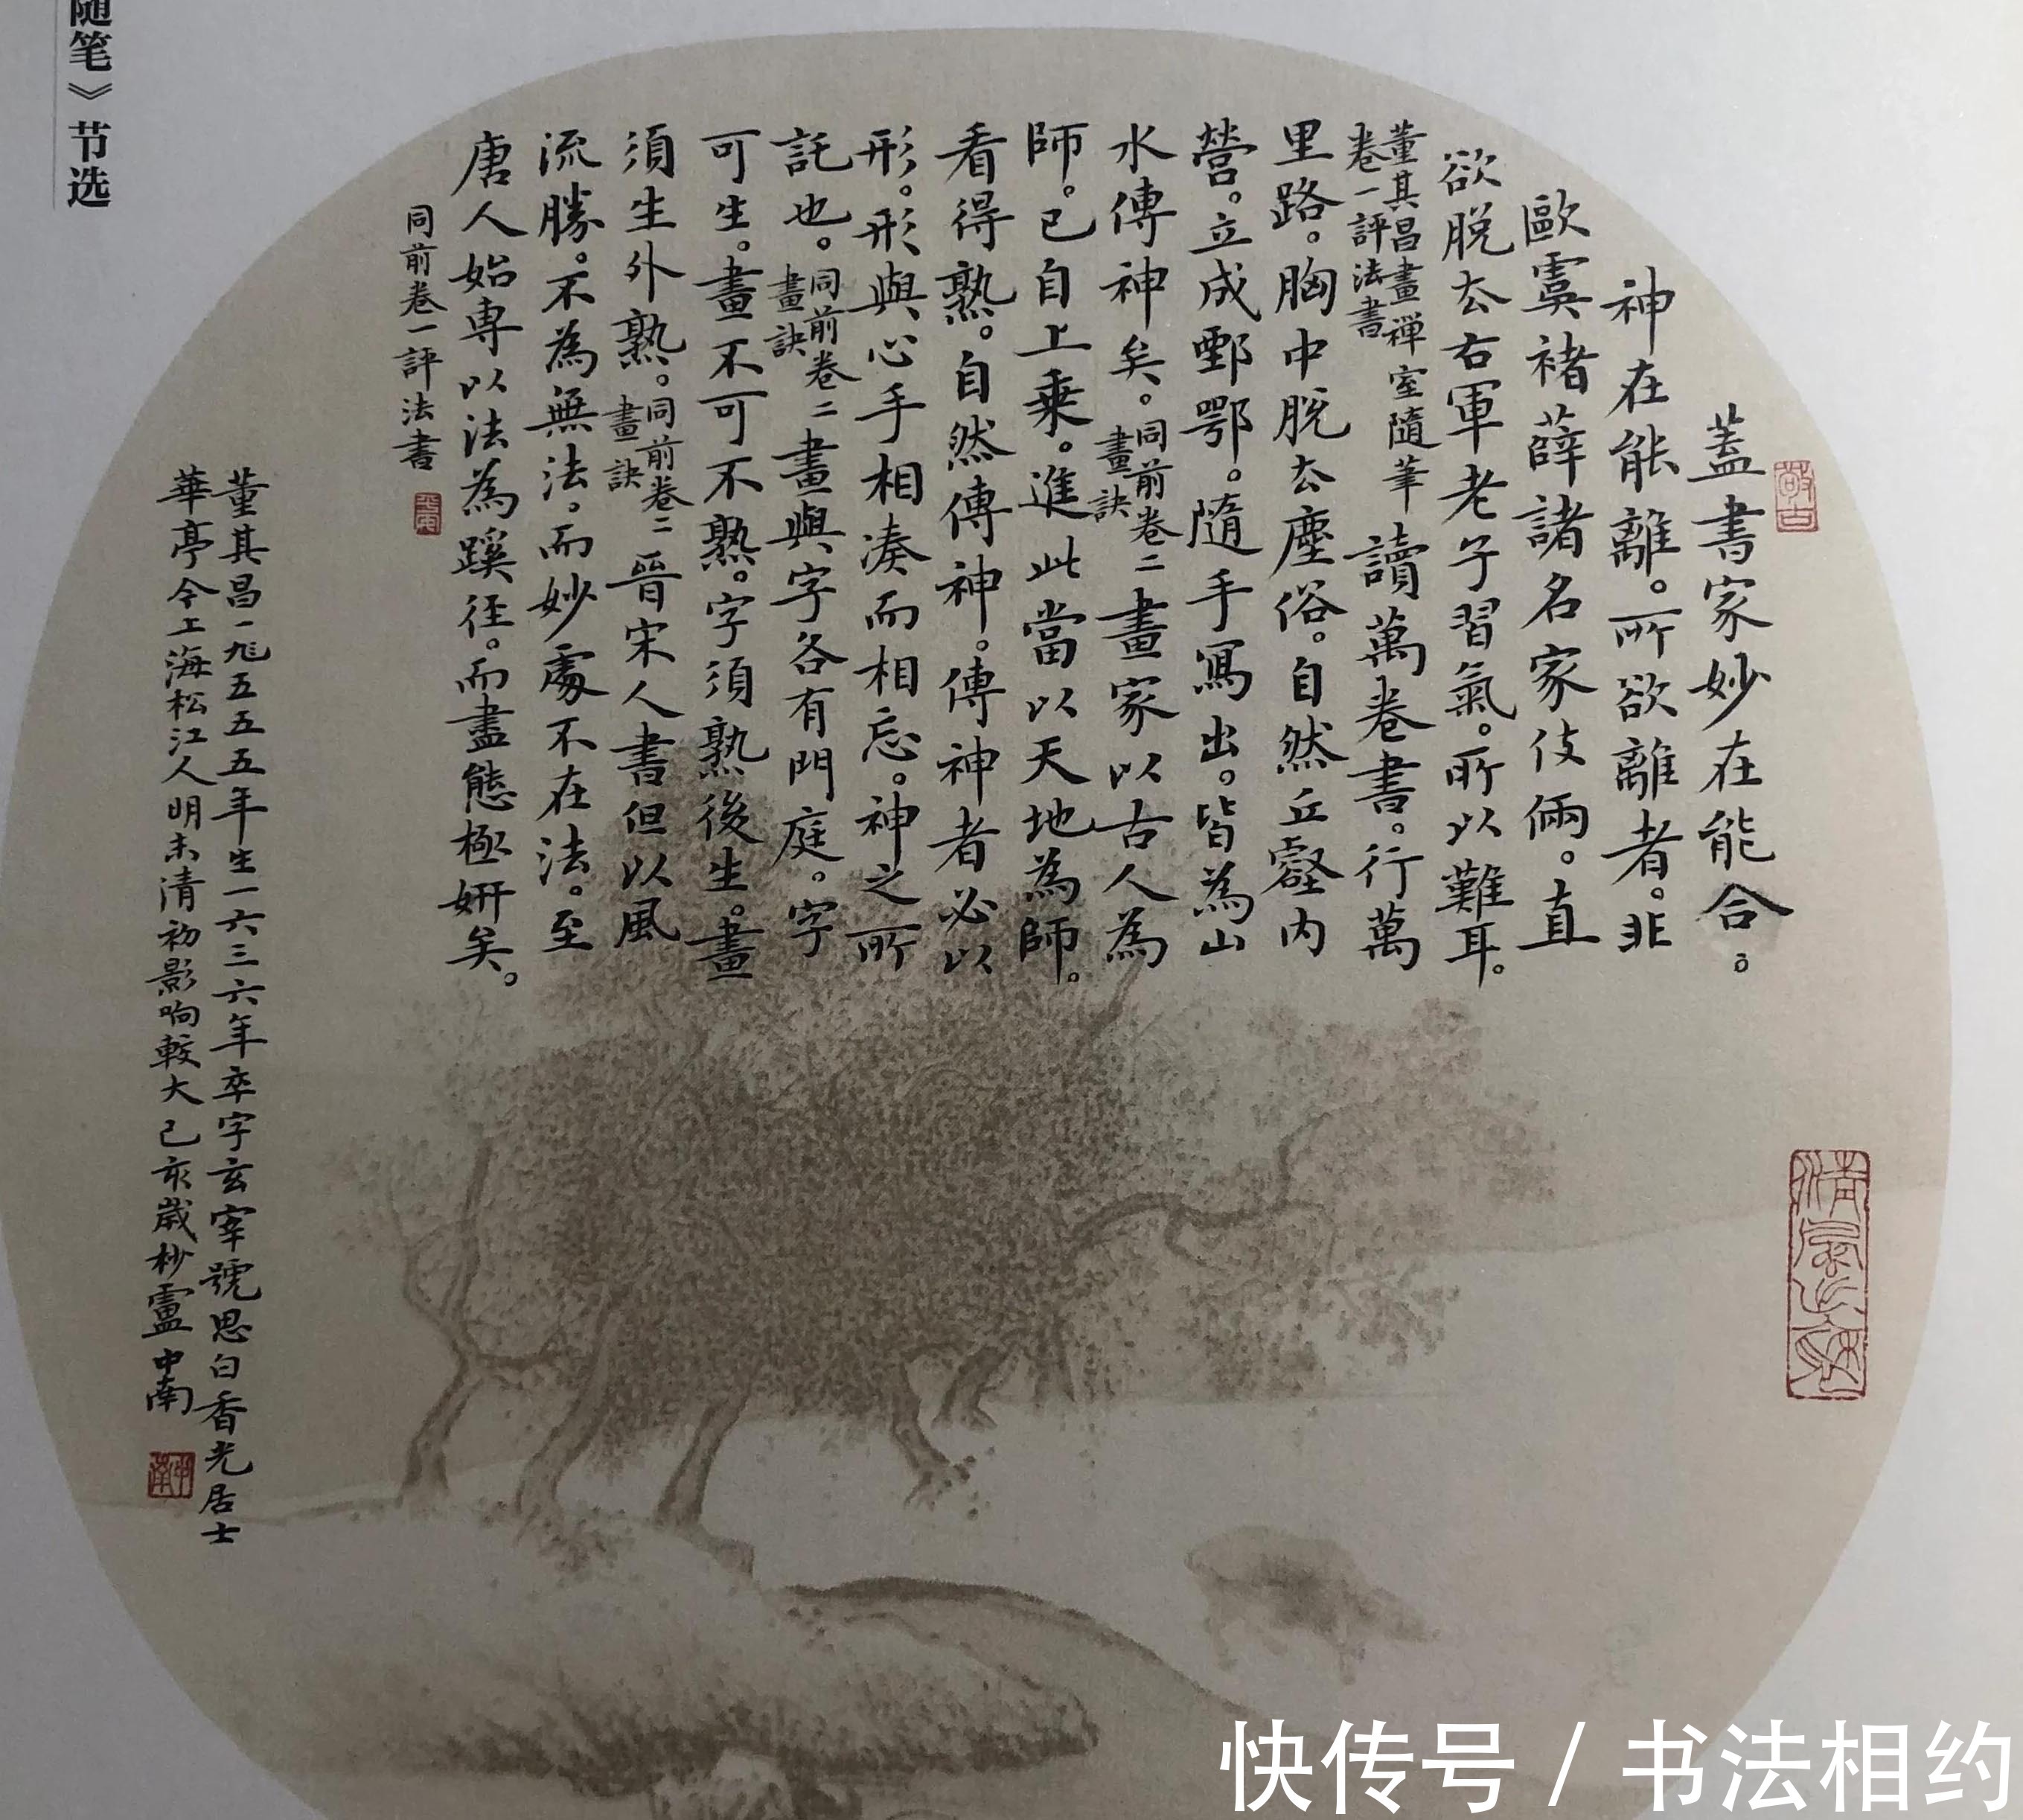 蓋書家妙在能合。
神在能離。所欲離者。非
歐虞褚薛諸名家伎倆。直
欲脱去右軍老子習氣。所以難耳。
董其昌畫禪室隨筆
卷一評法書
讀萬卷書。行萬
里路。胸中脱去塵俗。自然丘壑内
營。立成鄄鄂。隨手寫出。皆為山
水傳神矣。
同前卷二
畫訣
畫家以古人為
師。已自上乗。進此當以天地為師。
看得熟。自然傳神。傳神者必以
形。形與心手相湊而相忘。神之所
託也。
同前卷二
畫訣
畫與字各有門庭。字
可生。畫不可不熟。字須熟後生。畫
須生外熟。
同前卷二
畫訣
晉宋人書但以風
流勝。不為無法。而妙處不在法。至
唐人始専以法為蹊徑。而盡態極妍矣。
同前卷一評法書
董其昌一五五五年生一六三六年卒字玄宰號思白香光居士
華亭今上海松江人明末清初影响較大己亥歲杪盧中南
随笔》节选
敬古
中南
快传号 / 书法相约